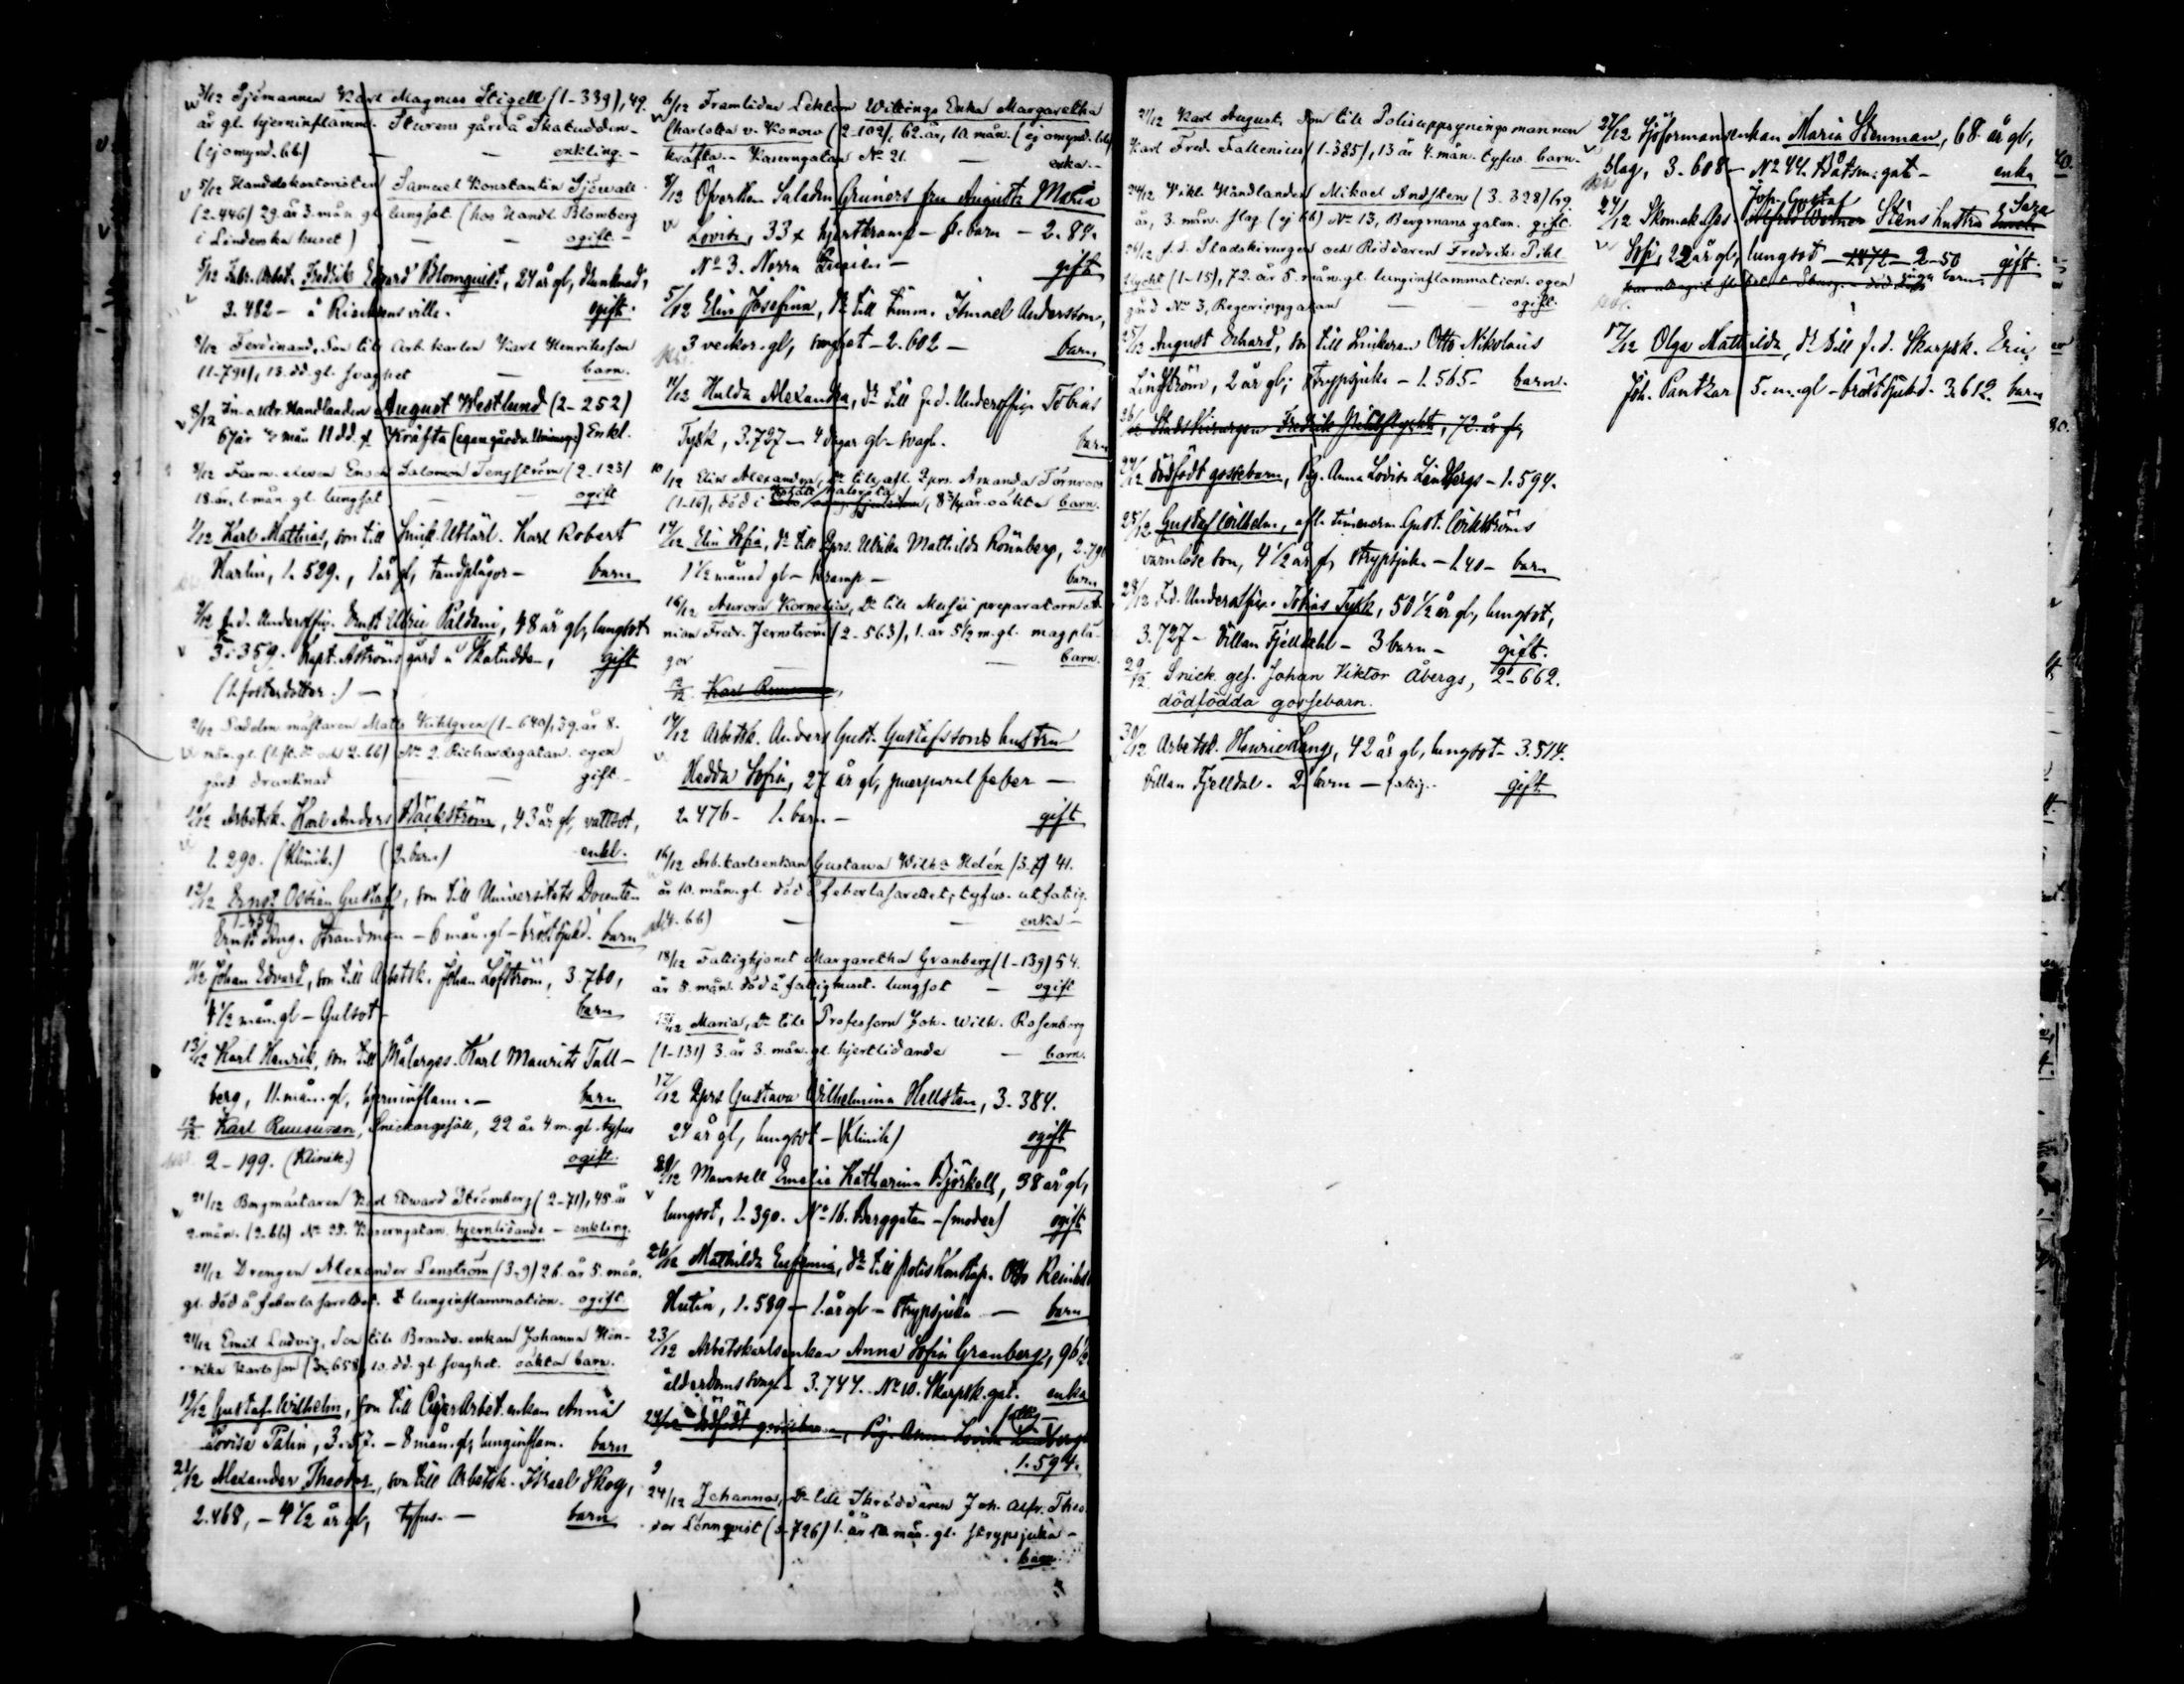 3/12 Sjömannen Karl Magnus Stigell (1-339), 49.
år gl. hjerninflamm. Sturens gård å Skatudden-
(ej omynd. bb.) — — enkling. -
5/12 Handelskontoristen Samuel Konstantin Sjöwall
(2-446) 29. år 3. mån gl lungsot. (hos Handl. Blomberg
i Lindenska huset) — — ogift -
5/12 Fabr. Arbet. Fredrik Edvard Blomquist, 24 år gl, drunknad,
3. 482 - å villa. ogift.
8/12 Ferdinand, Son till Arb. karlen Karl Henriksson
(1-791), 13. dd. gl. svaghet — barn.
8/12 Handlanden August Westlund (2-252)
67 år mån 11 dd. gl Kräfta (egen gård) Enkl.
8/12 Farm. eleven Enoch Salomon Tengström (2-123)
18. år, 1. mån. gl. lungsot — ogift
1/12 Karl Mathias, son till Snick. Utlärl. Karl Robert
Harlin, 1. 529., 1 år gl, tandplågor - barn
9/12 f. d. Underoffic. Ernst Ulric Paldani, 48 år gl, lungsot
3. 359. Kapt. Åströms gård å Skatudden, gift
(1. fosterdotter.) —
9/12 Sadelmästaren Matts Kihlgren (1-640), 39. år 8.
mån. gl. No 2. Richardsgatan. egen
gård drunknad — gift -
12/12 Arbetsk. Karl Anders Bäckström, 43 år gl, vattsot,
1. 290. (Klinik.) (2. barn) enkl.
12/12 Ernst Ossian Gustaf, son till Universitets Docenten
1-359
Ernst Aug. Strandman - 6 mån. gl - bröstsjukd. barn
11/12 Johan Edvard, son till Arbetsk. Johan Löfström, 3. 760,
4 1/2 mån. gl - Gulsot - barn
13/12 Karl Henrik, son till Målarges. Karl Maurits Tall-
berg, 11. mån. gl. hjerninflam. - barn
12/12 Karl Ruusuvan, Snickargesäll, 22 år 4 m. gl. tyfus
2-199. (Klinik.) ogift.
21/12 Borgmästaren Karl Edward Strömberg (2-71), 45. år
2. mån. (2. bb) No 28. Kaserngatan. hjernlidande. - enkling.
21/12 Drengen Alexander Lenström (3-9) 26. år 5. mån.
gl. död å feberlasarettet. lunginflammation. ogift.
21/12 Emil Ludvig, Son till Brandv. enkan Johanna Hen-
rika Karlsson (3-658), 10. dd. gl. svaghet. oäkta barn.
19/12 Gustaf Wilhelm, son till Cigarr Arbet. enkan Anna
Lovisa Palin, 3. - 8 mån. gl, lunginflam. barn
21/12 Alexander Theodor, son till Arbetsk. Israel Skog,
2. 468, - 4 1/2 år gl, tyfus. - barn
6/12 Framlidne Lektorn Willings Enka Margaretha
Charlotta v. Konow (2-102), 62. år, 10. mån. (ej omynd. bb)
kräfta. - Kaserngatan No 21. — enka. -
8/12 Öfversten Saladin Gruners fru Augusta Maria
Lovisa, 33 hjertkramp - barn - 2. 84.
No 3. Norra - gift
5/12 Elin Josefina, dr till timm. Ismael Andersson,
3 veckor gl, svaghet - 2. 602 - barn
11/12 Hulda Alexandra, dr till f. d. Underoffic. Tobias
Tysk, 3. 727 - 4 dagar gl - svagh. barn
10/12 Elin Alexandra, dr till afl. Qprs. Amanda Törnroos
(1-16), död i 8 3/4 år oäkta barn.
17/12 Elin Sofia, dr till Qprs. Ulrika Mathilda Rönnberg, 2.
1 1/2 månad gl - kramp - barn
16/12 Aurora Kornelia, dr till Musei preparatorn
Fredr. Jernström (2-563), 1. år 5 1/2 m. gl. magplå-
gor — — barn.
12/12 Karl
14/12 Arbetsk. Anders Gust. Gustafssons hustru
Hedda Sofia, 27 år gl, puerperal feber —
2. 476 - 1. barn - gift
16/12 Arb. karlsenkan Gustava Wilh:a Helén (3-7) 41.
år 10. mån. gl. död å feberlasarettet, tyfus. utfattig.
(4. bb) — — enka -
18/12 Fattighjonet Margaretha Granberg (1-139) 54.
år 8. mån. död å fattighuset. lungsot — ogift
12 Maria, dr till Professorn Joh. Wilh. Rosenborg
(1-131) 3. år 3. mån. gl. hjertlidande — barn.
17/12 Qprs Gustava Wilhelmina Hellsten, 3. 384.
24 år gl, lungsot - (Klinik) ogift
20/12 Mamsell Emelie Katharina Björkell, 38 år gl,
lungsot, 1. 390. No 16. Berggatan - (moder) ogift
26/12 Mathilda Eufemia, dr till polis Konstap. Otto
Hutin, 1. 589 - 1. år gl - strypsjuka — barn
23/12 Arbetskarlsenkan Anna Sofia Granberg, 96 1/2
ålderdomssvagh. 3. 744. No 10. Skarpsk. gat. enka
fattig -
24/12 dödfödt gossebarn, Pig. Anna Lovisa Lindbergs
1. 594.
24/12 Johanna, dr till Skräddaren Joh. Alfr. Theo-
dor Lönnqvist (3-726) 1. år 10. mån. gl. strypsjuka -
barn
21/12 Karl August, Son till Polisuppsyningsmannen
Karl Fred. Fallenius (1-385), 13 år 4. mån. tyfus. barn.
24/12 Vikt. Handlanden Mikael Andsten (3. 328) 69
år, 3. mån. slag (ej bb) No 13, Bergmans gatan. gift.
26/12 f. d. Stadskirurgen och Riddaren Fredrik Pihl-
flyckt (1-15), 72. år 5. mån. gl. lunginflammation. egen
gård No 3, Regeringsgatan — ogift.
25/12 August Erhard, son till Länkaren Otto Nikolaus
Lindström, 2 år gl, strypsjuka - 1. 565 - barn.
26/12 Stadskirurgen Fredrik Pihlflyckt, 72. år gl,
24/12 dödfödt gossebarn, Pig. Anna Lovisa Lindbergs - 1. 594.
25/12 Gustaf Wilhelm, afl. timmerm. Gust. Wikströms
värnlöse son, 4 1/2 år gl, strypsjuka - 1. 40 - barn
28/12 F. d. Underoffic. Tobias Tysk, 50 1/2 år gl, lungsot,
3. 727 - Villan Fjelldahl - 3 barn - gift.
29/12 Snick. ges. Johan Viktor Åbergs, 2-662.
dödfödda gossebarn.
30/12 Arbetsk. Henric Lang, 42 år gl, lungsot - 3. 514.
Villan Fjelldal. 2 barn - fattig. - gift
27/12 Sjöformansenkan Maria Stenman, 68 år gl,
slag, 3. 608 - No 44. Båtsm. gat - enka
Joh. Gustaf
27/12 Skomak. Ges Alfred Werner Sténs hustru Sara
Sofi, 22 år gl, lungsot - 1872 - 2-50 gift.
inga barn.
17/12 Olga Mathilda, dr till f. d. Skarpsk. Eric
Joh. Pantzar 5. m. gl - bröstsjukd. 3. 612. barn